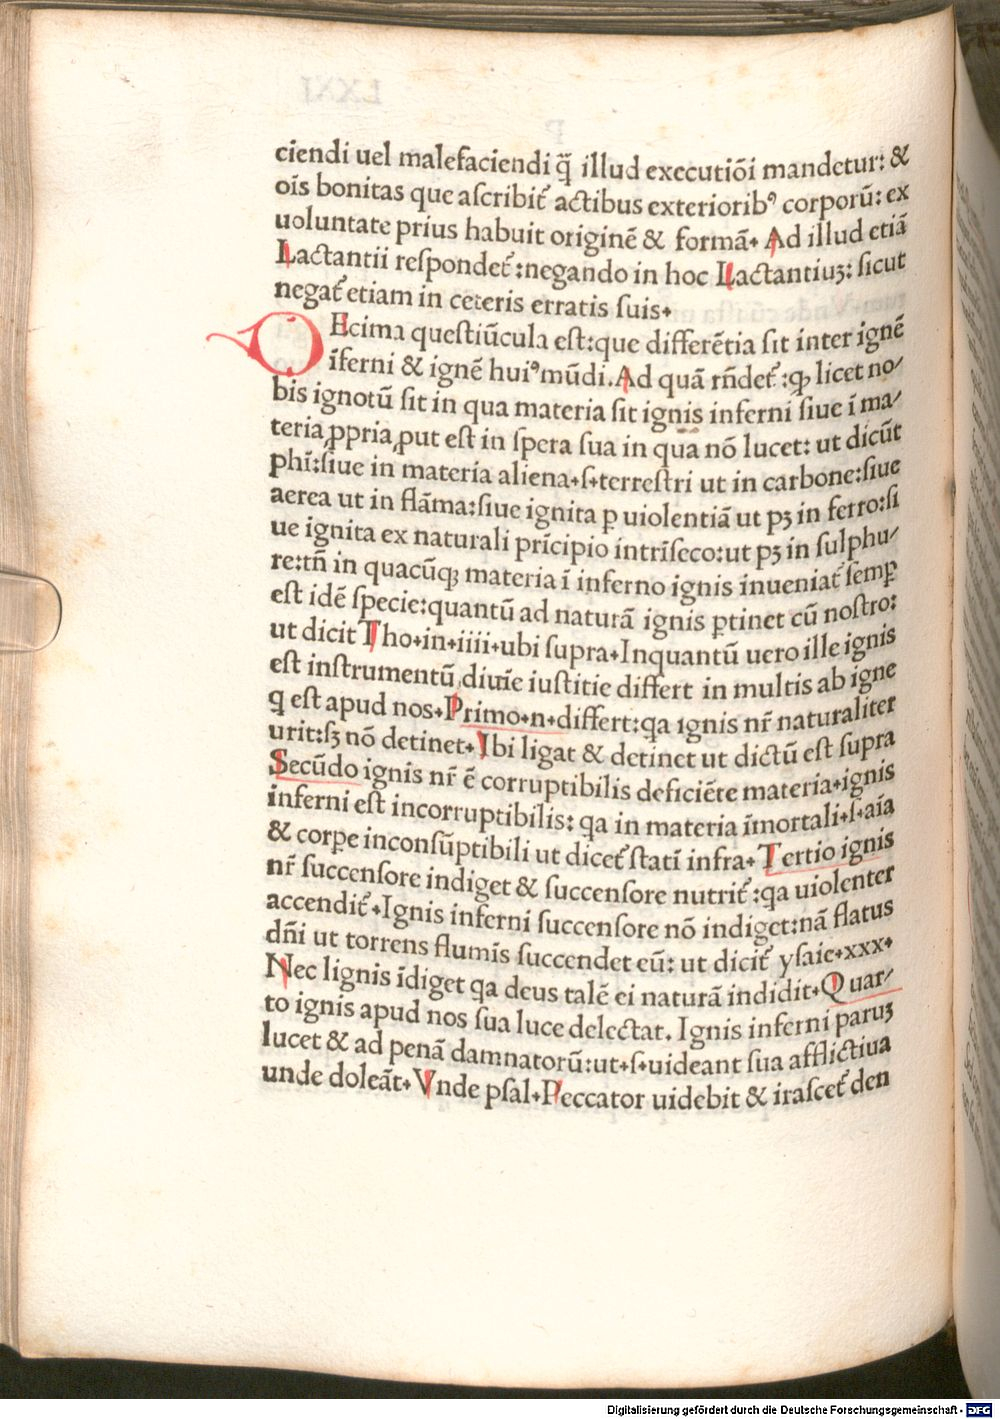 ciendi uel malefaciendi q̃ illud executiõi mandetur: &
oĩs bonitas que aſcribit᷑ actibus exteriorib⁹ corporũ: ex
uoluntate prius habuit originẽ & formã. Ad illud etiã
Lactantii reſpondet᷑: negando in hoc Lactantiuꝫ: ſicut
negat᷑ etiam in ceteris erratis ſuis.
DEcima queſtiũcula eſt: que differẽtia ſit inter ignẽ
ĩferni & ignẽ hui⁹ mũdi. Ad quã rñdet᷑: ꝙ licet no/
bis ignotũ ſit in qua materia ſit ignis inferni ſiue ĩ ma/
teria ꝓpria ꝓut eſt in ſpera ſua in qua nõ lucet: ut dicũt
phĩ: ſiue in materia aliena. ſ. terreſtri ut in carbone: ſiue
aerea ut in flãma: ſiue ignita ꝑ uiolentiã ut pꝫ in ferro: ſi
ue ignita ex naturali prĩcipio intrĩſeco: ut pꝫ in ſulphu/
re: tñ in quacũqꝫ materia ĩ inferno ignis inueniat᷑ ſemꝑ
eſt idẽ ſpecie: quantũ ad naturã ignis ꝑtinet cũ noſtro:
ut dicit Tho. in. iiii. ubi ſupra. Inquantũ uero ille ignis
eſt inſtrumentũ diuiẽ iuſtitie differt in multis ab igne
q eſt apud nos. Primo. n. differt: qa ignis nr̃ naturaliter
urit: ſꝫ nõ detinet. Ibi ligat & detinet ut dictũ eſt ſupra
Secũdo ignis nr̃ ẽ corruptibilis deficiẽte materia. ignis
inferni eſt incorruptibilis: qa in materia ĩmortali. ſ. aĩa
& corpe inconſũptibili ut dicet᷑ ſtatĩ infra. Tertio ignis
nr̃ ſuccenſore indiget & ſuccenſore nutrit᷑: qa uiolenter
accendit᷑. Ignis inferni ſuccenſore nõ indiget: nã flatus
dñi ut torrens flumĩs ſuccendet eũ: ut dicit᷑ yſaie. xxx.
Nec lignis ĩdiget qa deus talẽ ei naturã indidit. Quar/
to ignis apud nos ſua luce delectat. Ignis inferni paruꝫ
lucet & ad penã damnatorũ: ut. ſ. uideant ſua afflictiua
unde doleãt. Vnde pſal. Peccator uidebit & iraſcet᷑ den
Digitalisierung gefördert durch die Deutsche Forschungsgemeinschaft - DFG